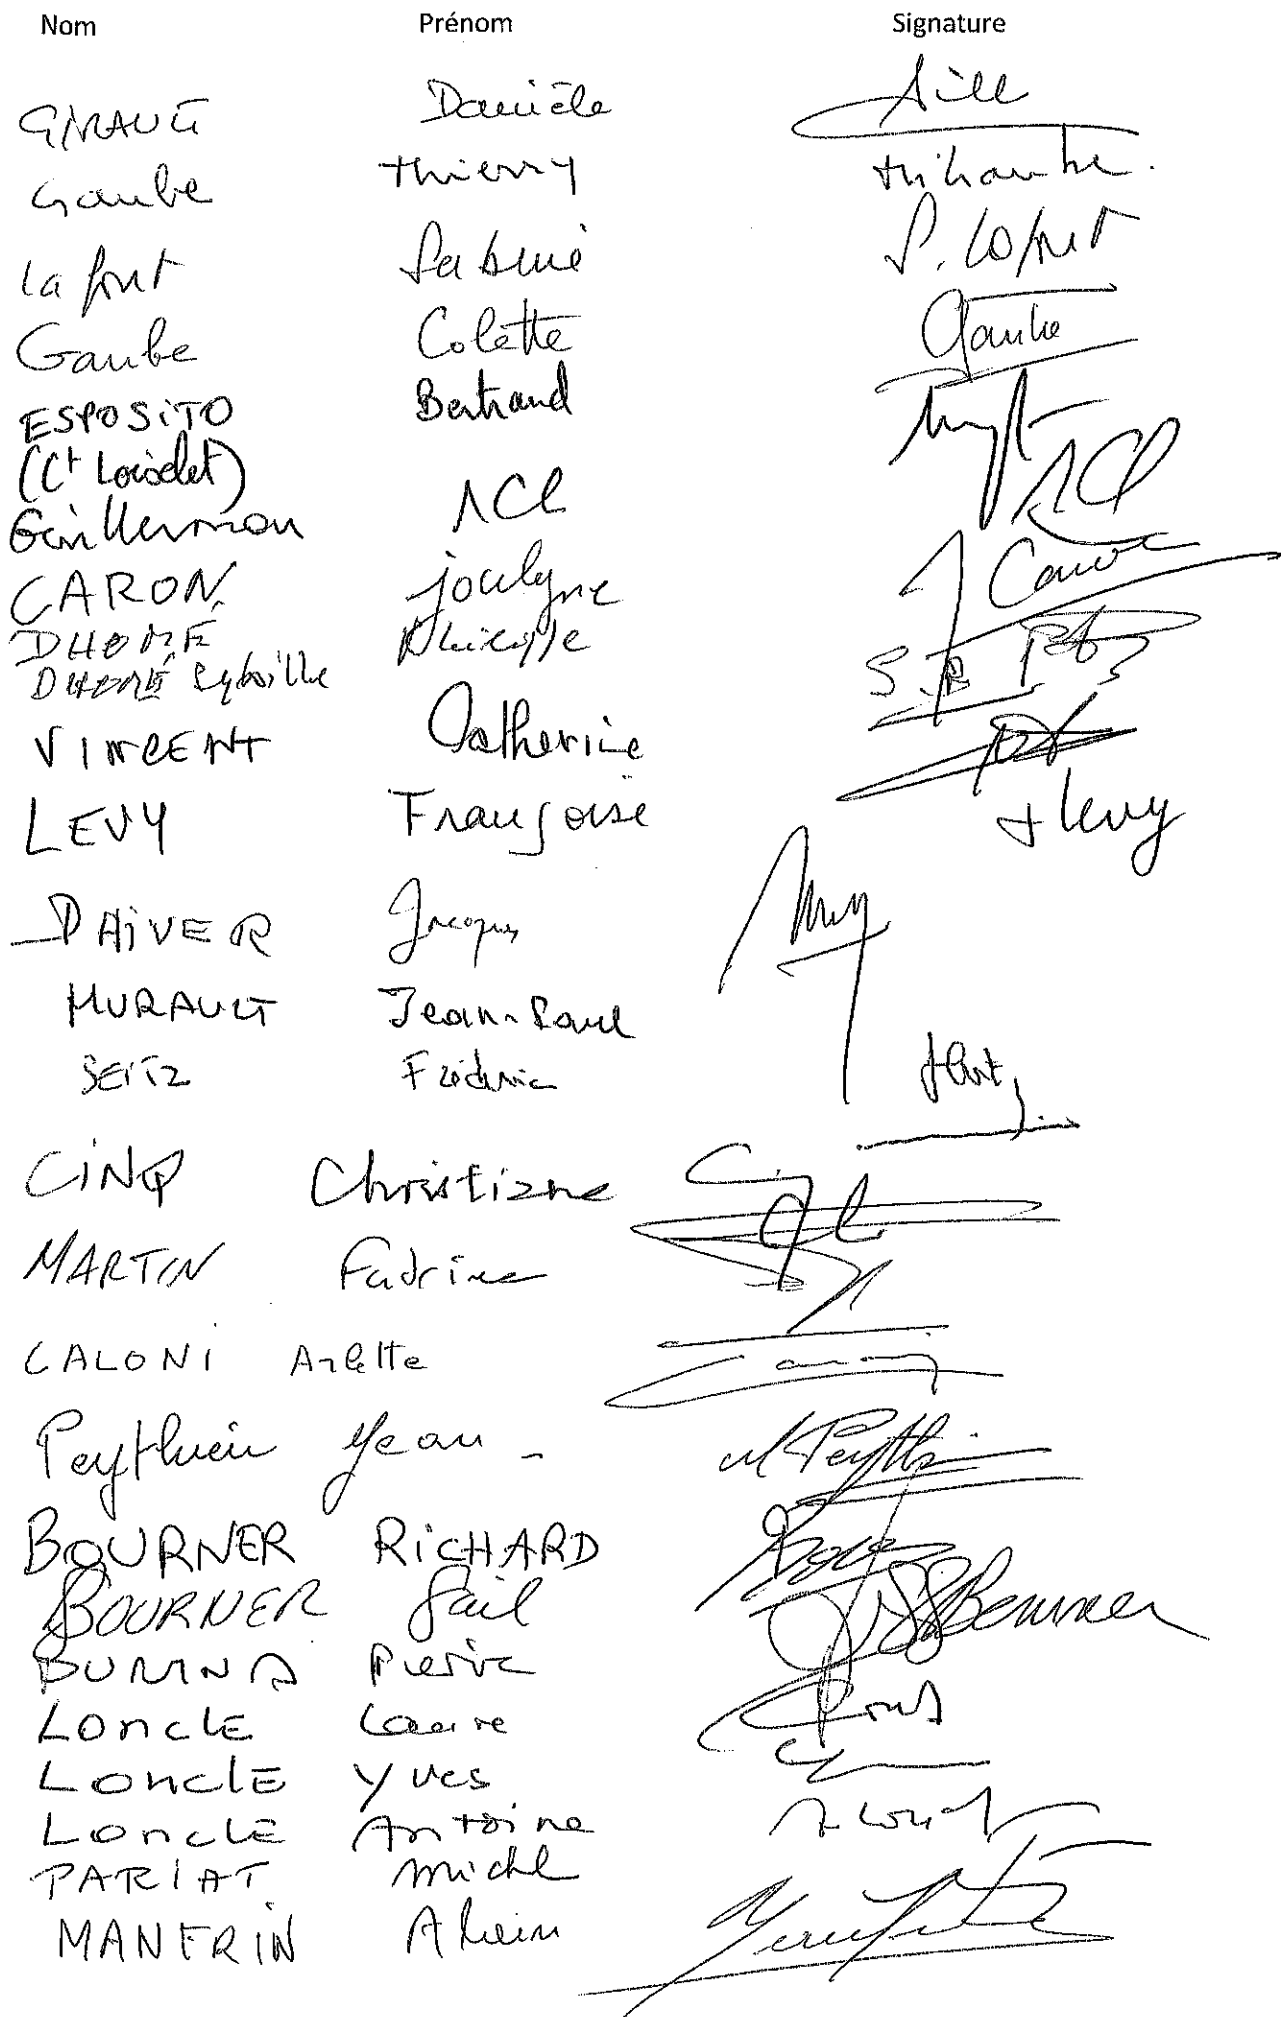 Nom Prénom Signature
GIRAULT Danièle
Gaube Thierry
Lafont Sabine S. Lafont
Gaube Colette Gaube
ESPOSITO Bertrand
(Ct Loiselet)
Guillermou ACl ACl
CARON jocelyne J Caron
DHOMÉ Philippe
DHOMÉ Sybille
VINCENT Catherine
LEVY Françoise F Levy
DAiVER Jacques
HURAULT Jean-Paul
SEITZ Frédéric
CiNQ Christiane
MARTIN
CALONi Arlette
Jean
BOURNER RiCHARD
BOURNER Gail Bourner
Pierre
LONCLE Laure
LONCLE Yves
LONCLE Antoine
PARIAT Michel
MANFRIN Alain